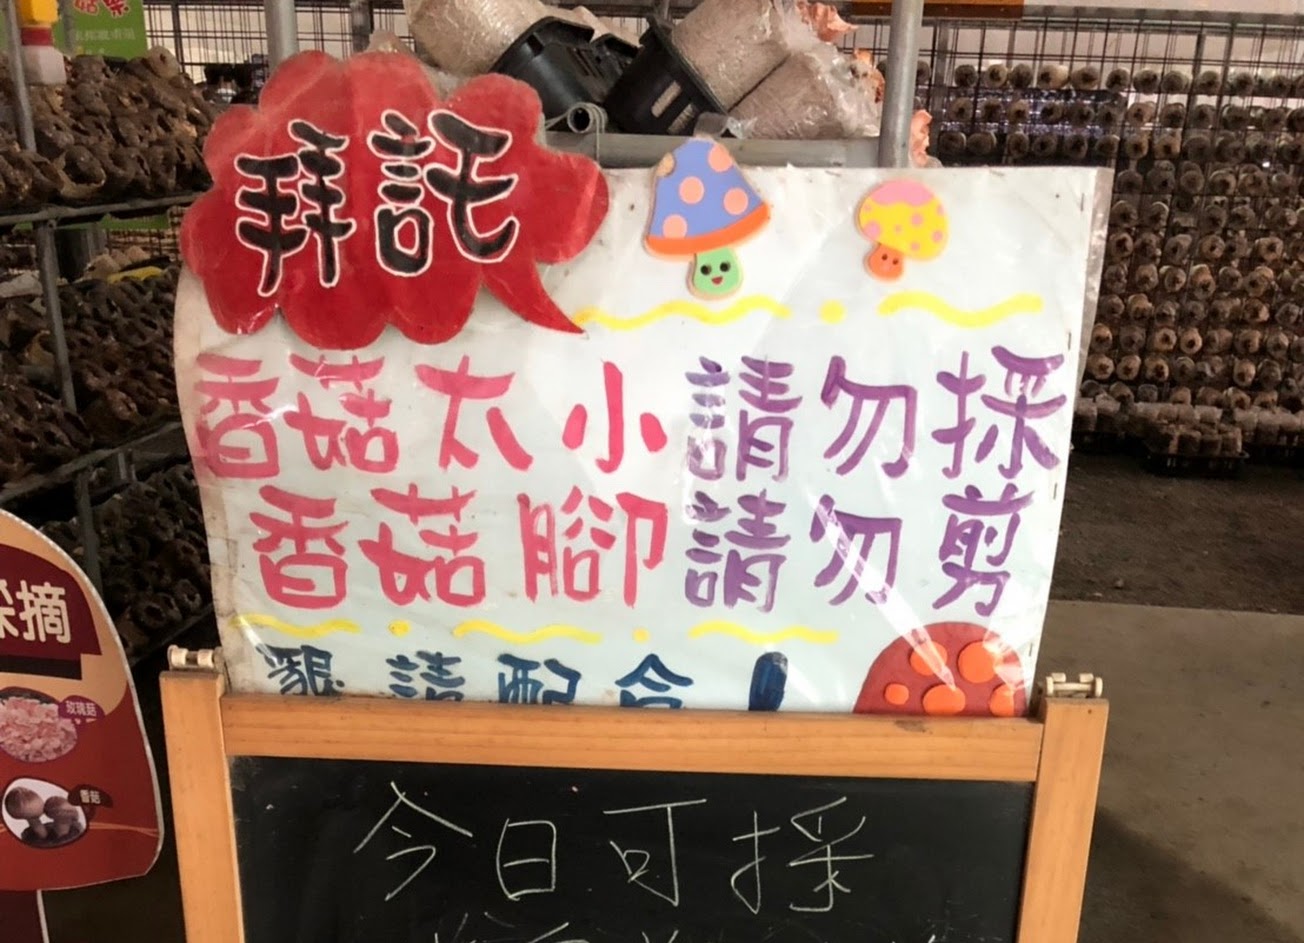 拜託
香菇太小請勿採
香菇腳請勿剪
懇請配合!
今日可採
採摘
玫瑰菇
香菇